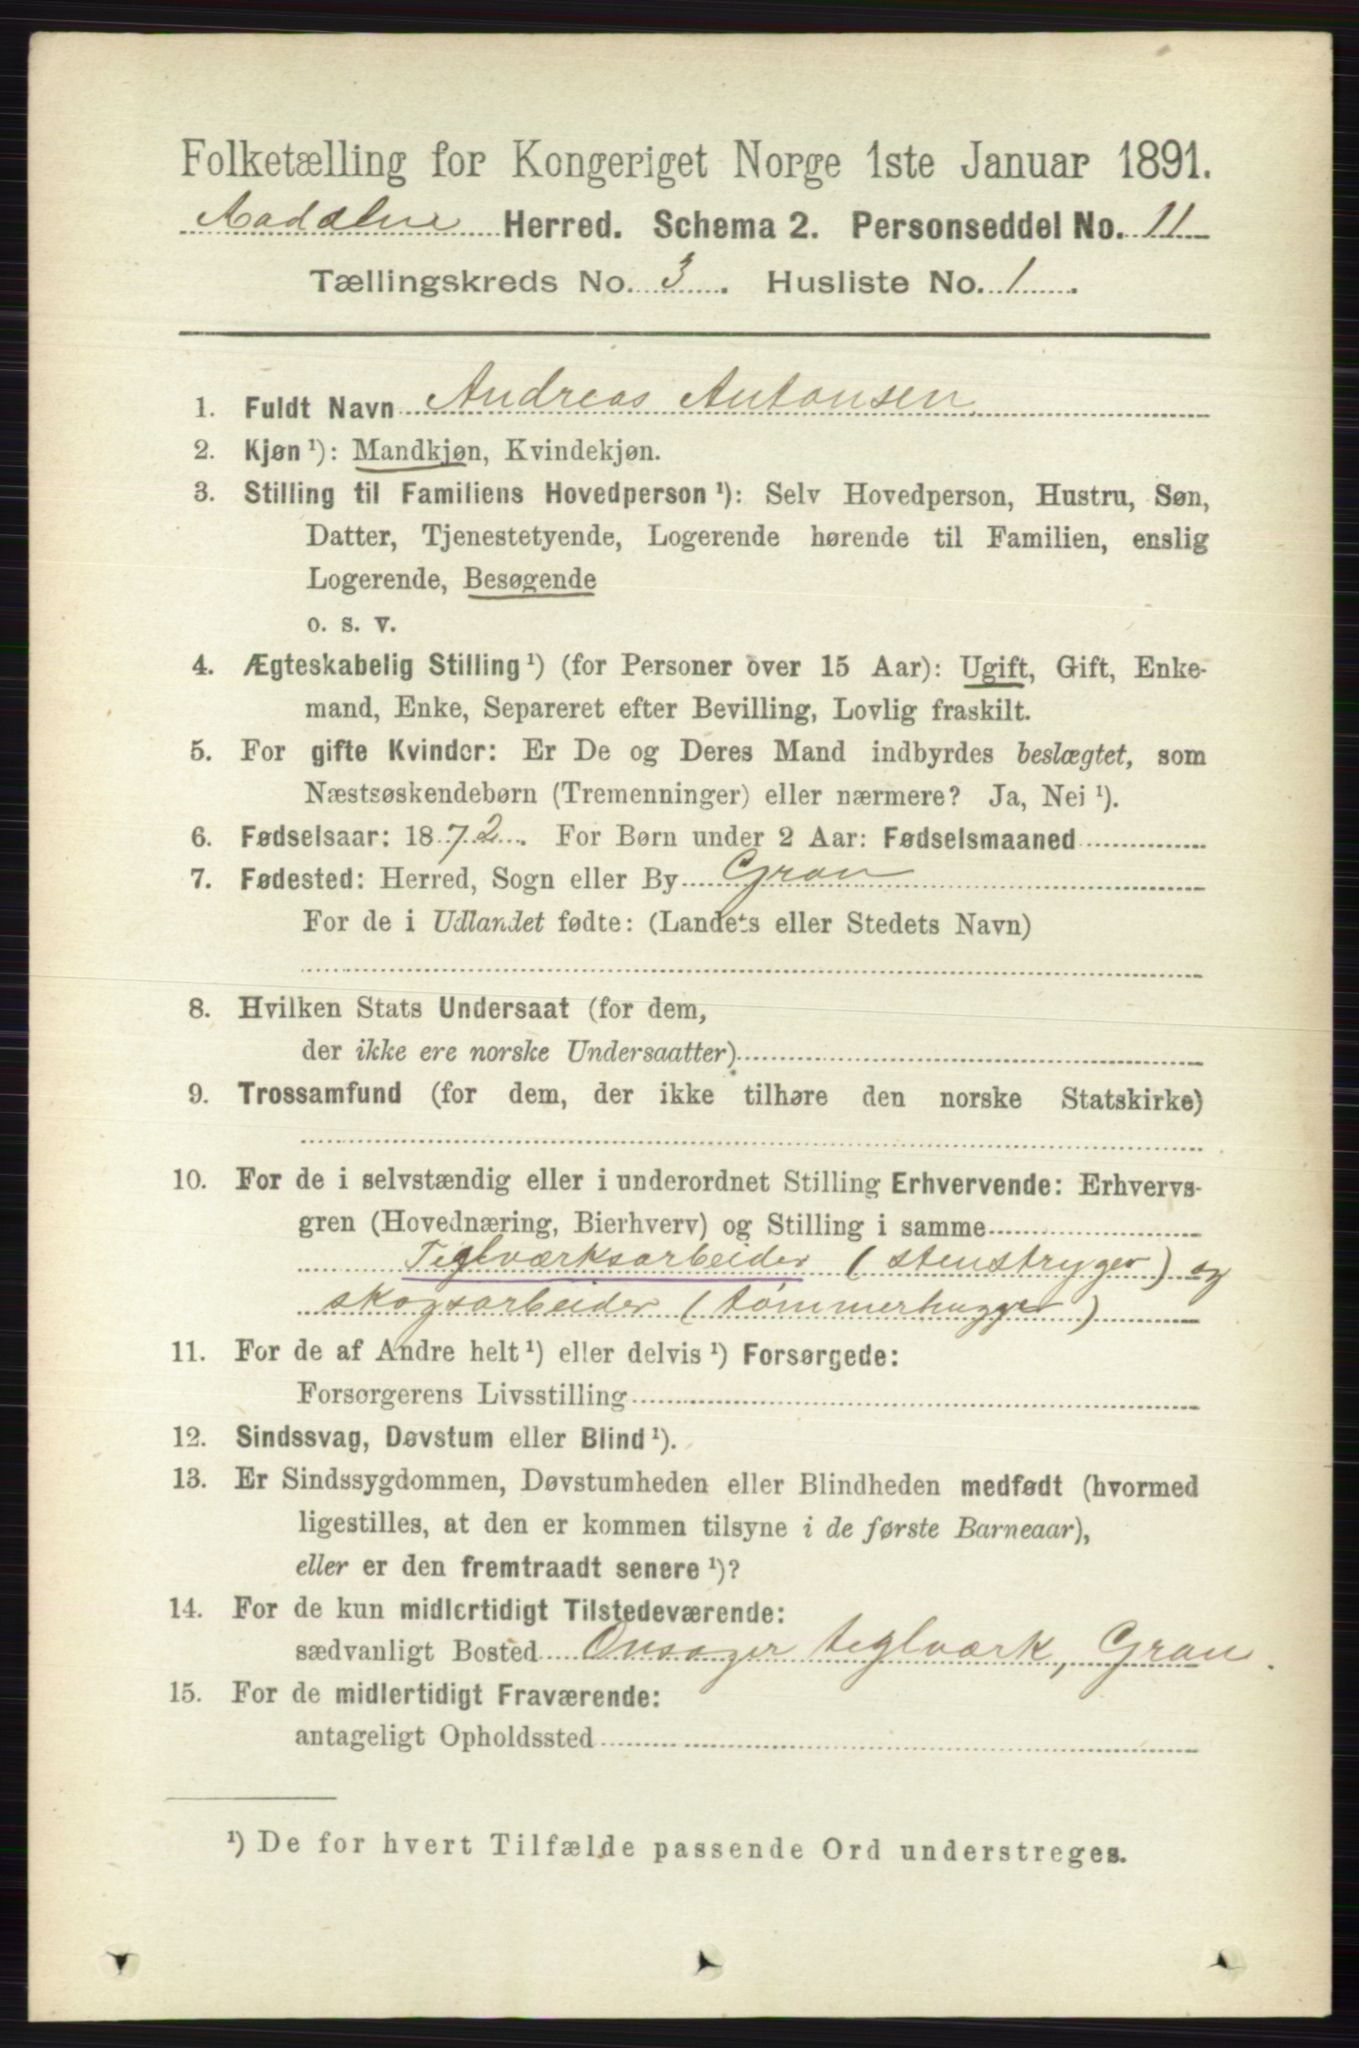 Folketælling for Kongeriget Norge 1ste Januar 1891.
Aadalen Herred. Schema 2. Personseddel No. 11
Tællingskreds No. 3. Husliste No. 1.
1. Fuldt Navn Andreas Antonsen
2. Kjøn ¹): Mandkjøn, Kvindekjøn.
3. Stilling til Familiens Hovedperson ¹): Selv Hovedperson, Hustru, Søn,
Datter, Tjenestetyende, Logerende hørende til Familien, enslig
Logerende, Besøgende
o. s. v.
4. Ægteskabelig Stilling ¹) (for Personer over 15 Aar): Ugift, Gift, Enke-
mand, Enke, Separeret efter Bevilling, Lovlig fraskilt.
5. For gifte Kvinder: Er De og Deres Mand indbyrdes beslægtet, som
Næstsøskendebørn (Tremenninger) eller nærmere? Ja, Nei ¹).
6. Fødselsaar: 1872. For Børn under 2 Aar: Fødselsmaaned
7. Fødested: Herred, Sogn eller By Gran
For de i Udlandet fødte: (Landets eller Stedets Navn)
8. Hvilken Stats Undersaat (for dem,
der ikke ere norske Undersaatter)
9. Trossamfund (for dem, der ikke tilhøre den norske Statskirke)
10. For de i selvstændig eller i underordnet Stilling Erhvervende: Erhvervs-
gren (Hovednæring, Bierhverv) og Stilling i samme
Teglværksarbeider (stenstryger) og
skogsarbeider (tømmerhugger)
11. For de af Andre helt ¹) eller delvis ¹) Forsørgede:
Forsørgerens Livsstilling
12. Sindssvag, Døvstum eller Blind ¹).
13. Er Sindssygdommen, Døvstumheden eller Blindheden medfødt (hvormed
ligestilles, at den er kommen tilsyne i de første Barneaar),
eller er den fremtraadt senere ¹)?
14. For de kun midlertidigt Tilstedeværende:
sædvanligt Bosted Onsager teglværk, Gran.
15. For de midlertidigt Fraværende:
antageligt Opholdssted
¹) De for hvert Tilfælde passende Ord understreges.